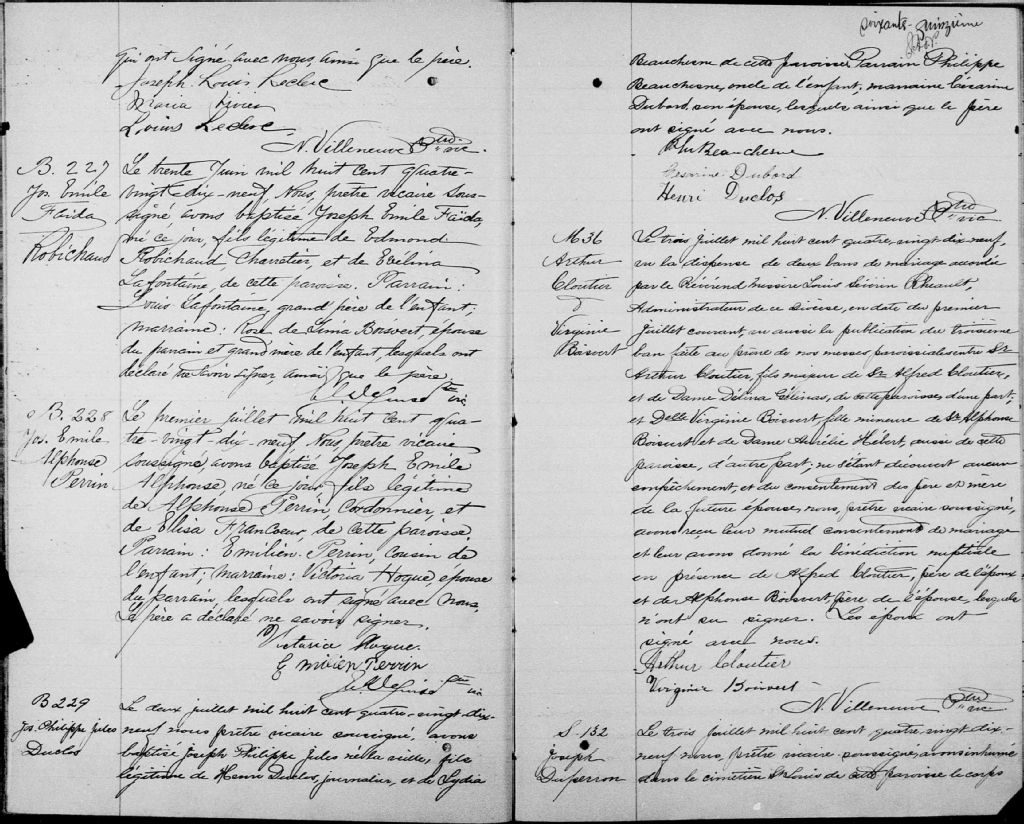 qui ont signé avec nous, ainsi que le père.
Joseph Louis Leclerc
Maria
Louis Leclerc
N. Villeneuve Ptre vic
B. 227
Jos. Emile
Faïda
Robichaud
Le trente Juin mil huit cent quatre-
vingt-dix-neuf, Nous, prêtre vicaire sous-
signé avons baptisé Joseph Emile Faïda,
né ce jour, fils légitime de Edmond
Robichaud Charretier, et de Evelina
Lafontaine, de cette paroisse. Parrain:
Louis Lafontaine, grand père de l'enfant;
marraine: Rose de Lima Boisvert, épouse
du parrain et grand'mère de l'enfant, lesquels ont
déclaré ne savoir signer, ainsi que le père
Ptre vic
B. 228
Jos. Emile
Alphonse
Perrin
Le premier juillet mil huit cent qua-
tre-vingt dix-neuf Nous prêtre vicaire
soussigné, avons baptisé Joseph Emile
Alphonse, né ce jour, fils légitime
de Alphonse Perrin, Cordonnier, et
de Elisa Francoeur, de cette paroisse.
Parrain: Emilien Perrin, cousin de
l'enfant; marraine: Victoria Hogue, épouse
du parrain, lesquels ont signé avec nous,
Le père a déclaré ne savoir signer.
Victoria Hogue
Emilien Perrin
Ptre vic
B 229
Jos. Philippe Jules
Duclos
Le deux juillet mil huit cent quatre-vingt dix-
neuf nous prêtre vicaire soussigné, avons
baptisé Joseph Philippe Jules né la veille, fils
légitime de Henri Duclos, journalier, et de Lydia
soixante-quinzième
Beauchesne de cette paroisse, Parrain Philippe
Beauchesne, oncle de l'enfant, marraine Césarine
Dubord, son épouse, lesquels ainsi que le père
ont signé avec nous.
Phi Beauchesne
Cesarine Dubord
Henri Duclos
N. Villeneuve Ptre vic
M 36
Arthur
Cloutier
&
Virginie
Boisvert
Le trois juillet mil huit cent quatre-vingt dix-neuf,
vu la dispense de deux bans de mariage accordée
par le Révérend messire Louis Séverin Rheault,
Administrateur de ce diocèse, en date du premier
juillet courant, vu aussi la publication du troisième
ban faite au prône de nos messes paroissiales entre Sr
Arthur Cloutier, fils majeur de Sr Alfred Cloutier,
et de Dame Délina Gélinas, de cette paroisse, d'une part,
et Delle Virginie Boisvert, fille mineure de Sr Alphonse
Boisvert et de Dame Aurélie Hebert, aussi de cette
paroisse, d'autre part, ne s'étant découvert aucun
empêchement, et du consentement des père et mère
de la future épouse, nous, prêtre vicaire soussigné,
avons reçu leur mutuel consentement de mariage
et leur avons donné la bénédiction nuptiale
en présence de Alfred Cloutier, père de l'époux
et de Alphonse Boisvert, père de l'épouse, lesquels
n'ont su signer. Les époux ont
signé avec nous.
Arthur Cloutier
Virginie Boisvert
N. Villeneuve Ptre vic
S. 132
Joseph
Duperron
Le trois juillet mil huit cent quatre-vingt dix-
neuf nous, prêtre vicaire soussigné, avons inhumé
dans le cimetière St Louis de cette paroisse le corps